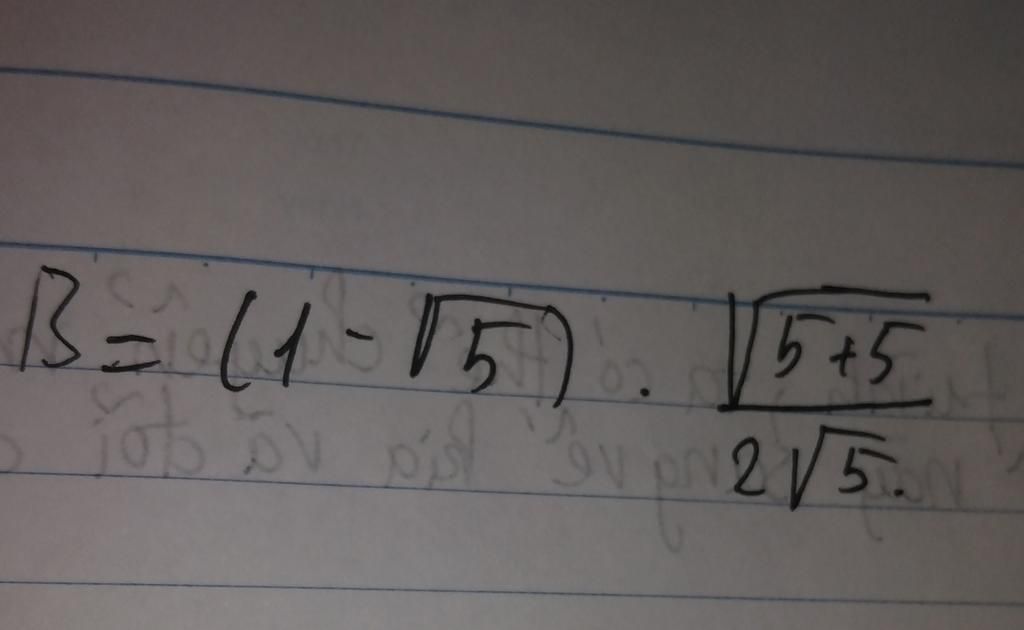 B = (1 - √5) . √(5+5) / 2√5.